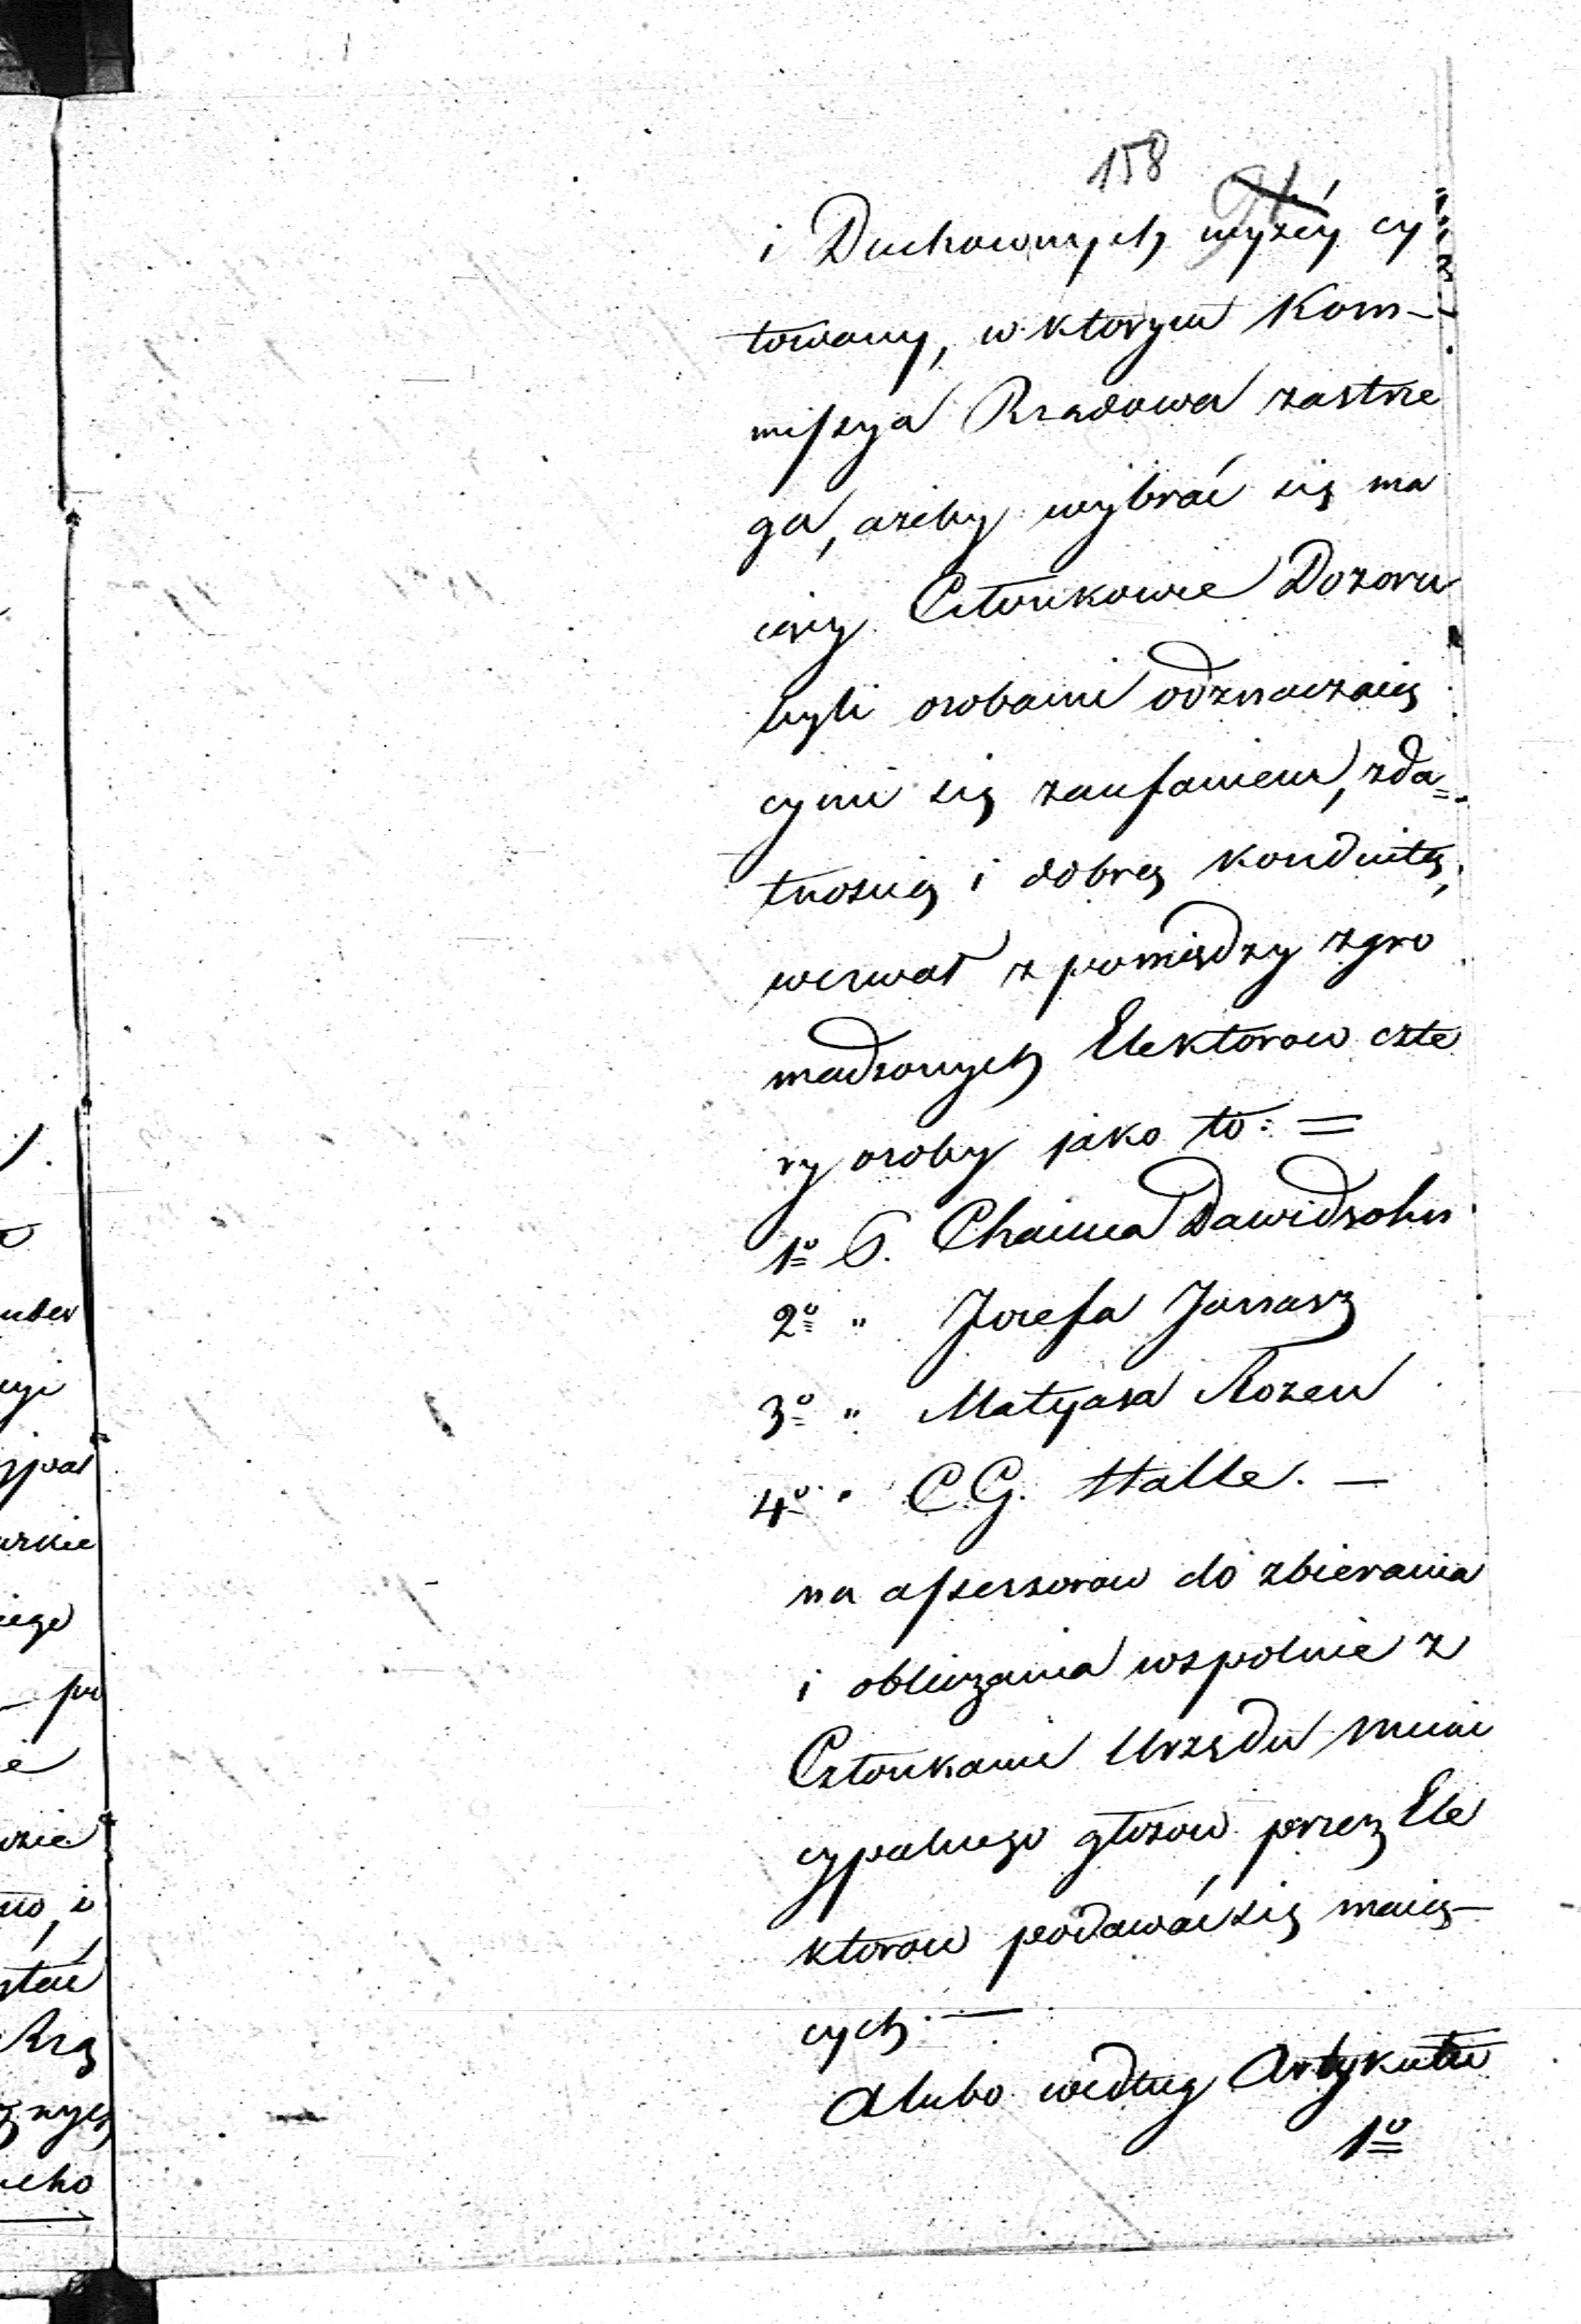 158
i Duchownych wyżéy cy
towany, w ktorym Kom-
missya Rządowa zastrze
ga, ażeby wybrać się ma
iący Członkowie Dozoru
byli osobami odznaczaią
cymi się zaufaniem, zda=
tnością i dobrą konduitą,
wezwał z pomiędzy zgro
madzonych Elektorow czte
ry osoby jako to: =
1o S. Chaima Dawidsohn
2o " Jozefa Janasz
3o " Matyasa Rozen
4o " C G. Halle. —
na assessorow do zbierania
i obliczania wspolnie z
Członkami Urzędu Muni
cypalnego głosow przez Ele
ktorow podawać się maią-
cych. —
Alubo według Artykułu
1o